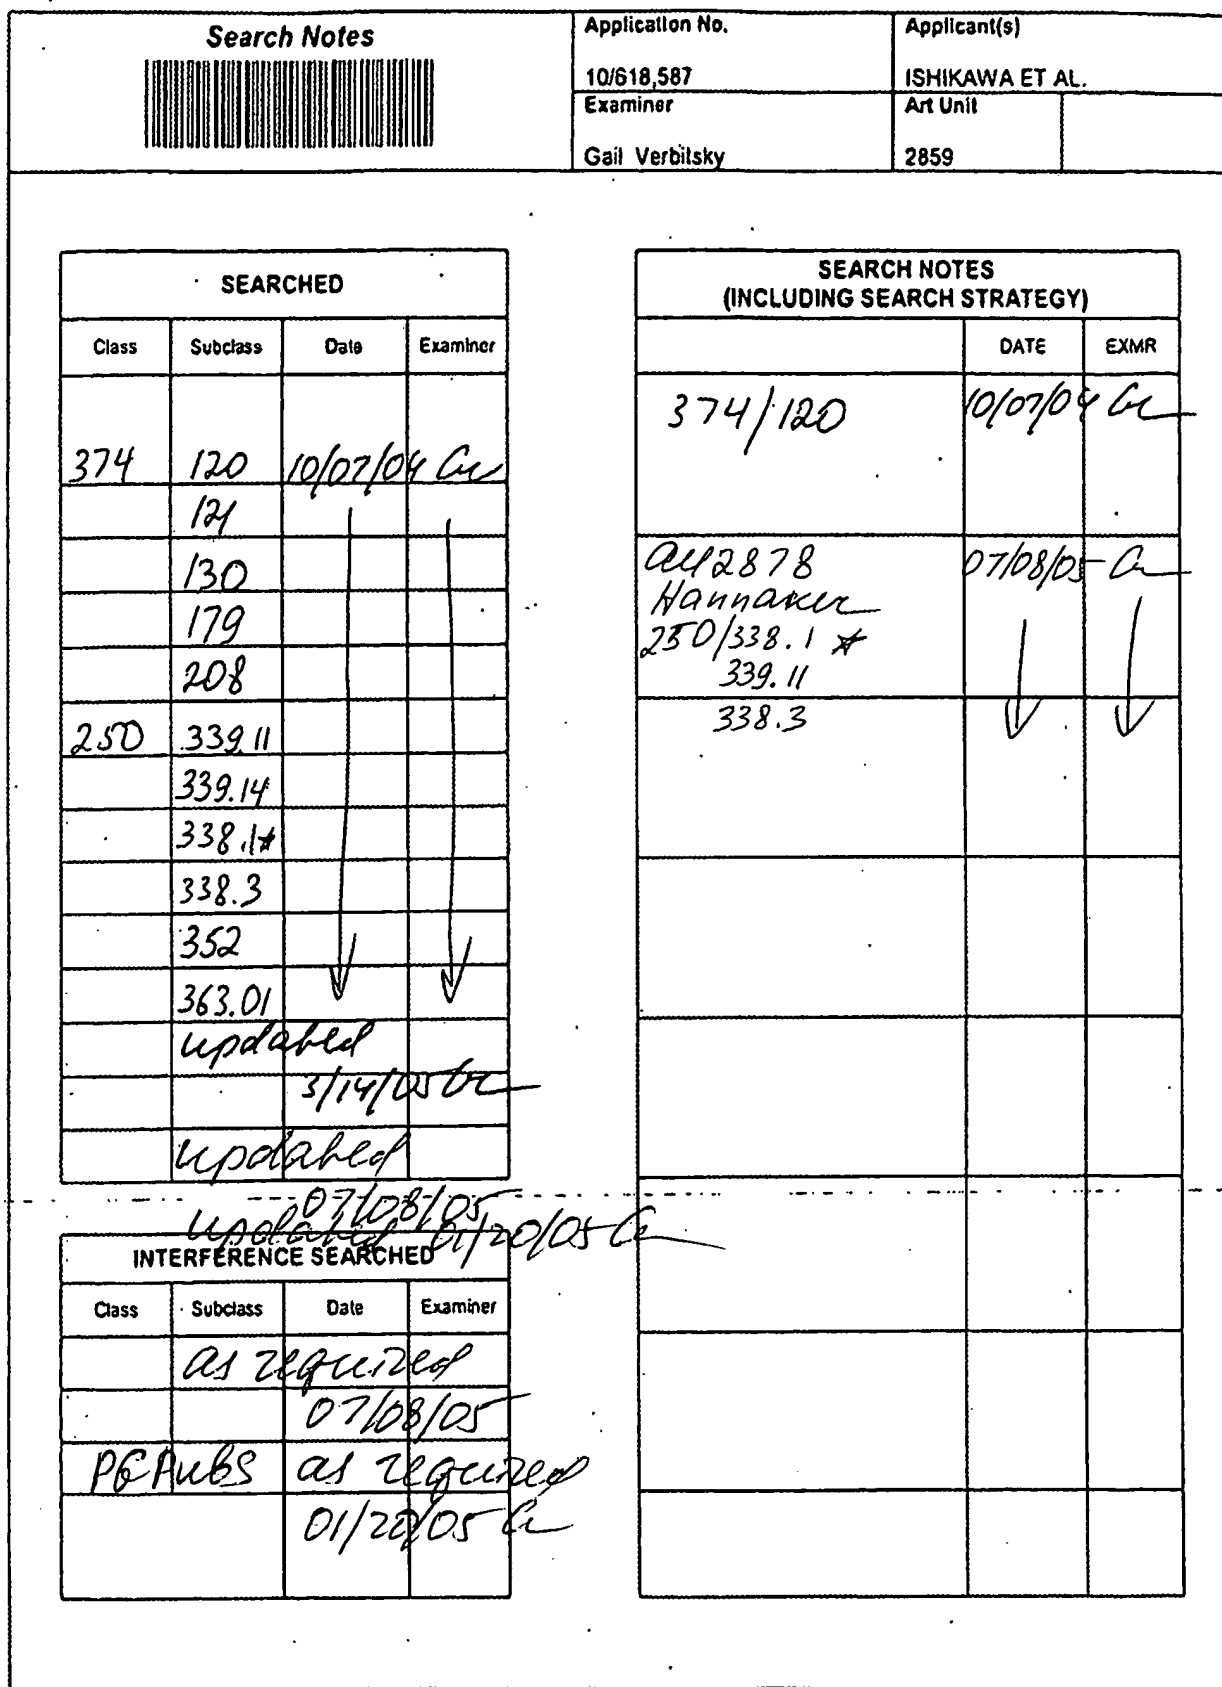 Search Notes
Application No.
10/618,587
Applicant(s)
ISHIKAWA ET AL.
Examiner
Gail Verbitsky
Art Unit
2859
SEARCHED
Class Subclass Date Examiner
374 120 10/07/04 Gv
121
130
179
208
250 339.11
339.14
338.1*
338.3
352
363.01
updated
3/14/05 Gv
updated
07/08/05
updated 01/20/05 Gv
INTERFERENCE SEARCHED
Class Subclass Date Examiner
as required
07/08/05
PGPubs as required
01/20/05 Gv
SEARCH NOTES
(INCLUDING SEARCH STRATEGY)
DATE EXMR
374/120 10/07/04 Gv
AU 2878 07/08/05 Gv
Hannaher
250/338.1 *
339.11
338.3